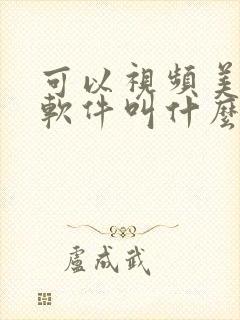 可以視頻美
軟件叫什麼
盧成武